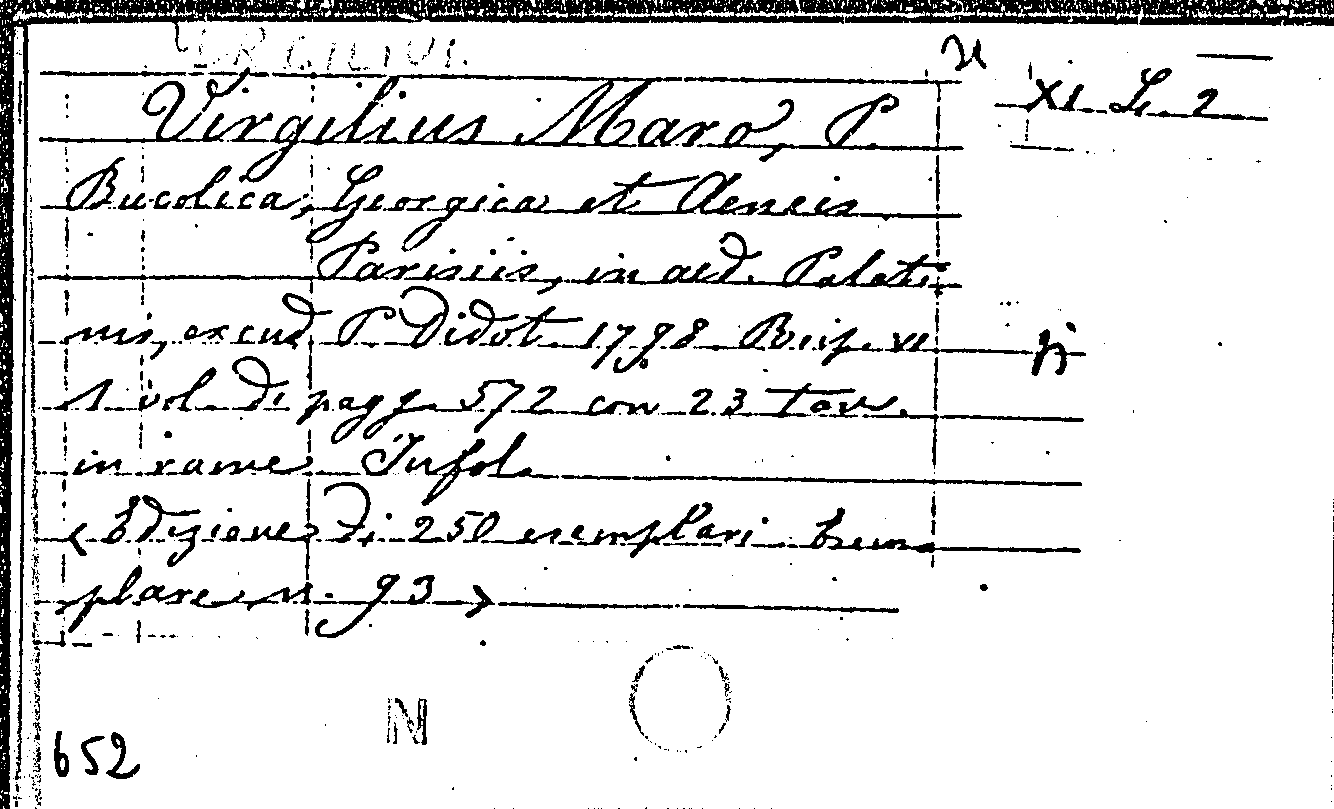 VIRGILIUS.
XI. L. 2
Virgilius Maro, P.
Bucolica, Georgica et Aeneis
Parisiis, in aed. Palati-
nis, excud. P. Didot 1798 Reip. VI
1 vol. di pagg. 572 con 23 tav.
in rame Infol.
(Edizione di 250 esemplari Esem-
plare n. 93)
N
652